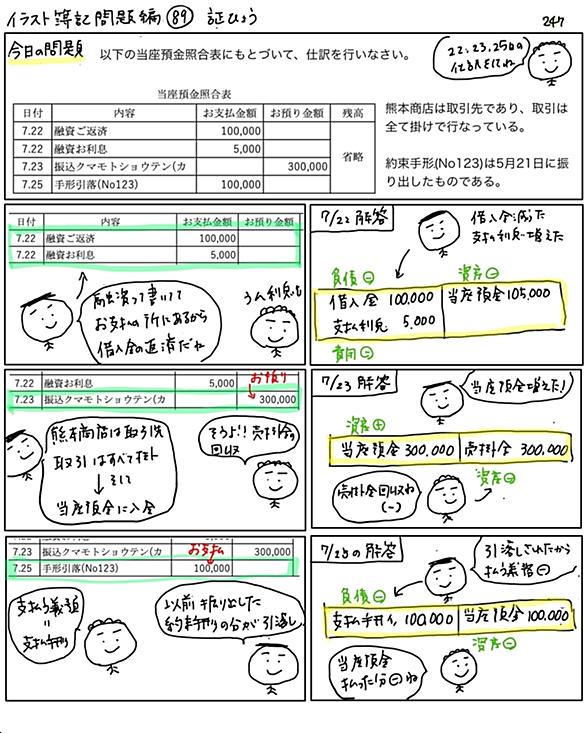 イラスト簿記問題編 89 証ひょう
247
今日の問題
以下の当座預金照合表にもとづいて、仕訳を行いなさい。
22、23、25日の
仕訳をしてね
当座預金照合表
日付 内容 お支払金額 お預り金額 残高
7.22 融資ご返済 100,000
7.22 融資お利息 5,000
7.23 振込クマモトショウテン(カ 300,000
7.25 手形引落(No123) 100,000
省略
熊本商店は取引先であり、取引は
全て掛けで行なっている。
約束手形(No123)は5月21日に振
り出したものである。
日付 内容 お支払金額 お預り金額
7.22 融資ご返済 100,000
7.22 融資お利息 5,000
融資って書いて
お支払の所にあるから
借入金の返済だね
うん利息も
7/22 解答
借入金減った
支払利息増えた
負債㊀
資産㊀
借入金 100,000 当座預金 105,000
支払利息 5,000
費用㊀
7.22 融資お利息 5,000
お預り
7.23 振込クマモトショウテン(カ 300,000
熊本商店は取引先
取引はすべて掛け
↓ そして
当座預金に入金
そうよ!! 売掛金の
回収
7/23 解答
当座預金増えた!
資産㊉
当座預金 300,000 売掛金 300,000
資産㊀
売掛金回収ね
(-)
7.23 振込クマモトショウテン(カ 300,000
お支払
7.25 手形引落(No123) 100,000
支払う義務
=
支払手形
以前振り出した
約束手形の分が引落し
7/25の解答
引落しされたから
払う義務㊀
負債㊀
支払手形 100,000 当座預金 100,000
資産㊀
当座預金
払った分㊀ね